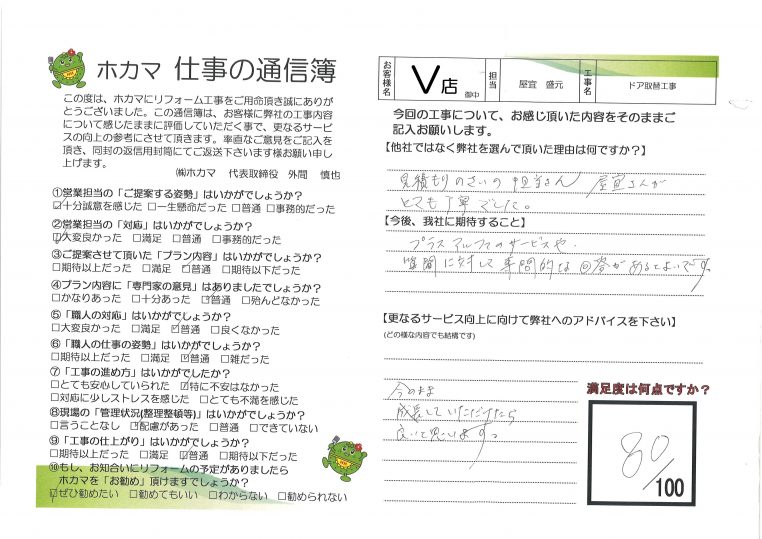 ホカマ 仕事の通信簿
この度は、ホカマにリフォーム工事をご用命頂き誠にありが
とうございました。この通信簿は、お客様に弊社の工事内容
について感じたままに評価していただく事で、更なるサービ
スの向上の参考にさせて頂きます。率直なご意見をご記入を
頂き、同封の返信用封筒にてご返送下さいます様お願い申し
上げます。
㈱ホカマ 代表取締役 外間 慎也
①営業担当の「ご提案する姿勢」はいかがでしょうか?
☑十分誠意を感じた □一生懸命だった □普通 □事務的だった
②営業担当の「対応」はいかがでしょうか?
☑大変良かった □満足 □普通 □事務的だった
③ご提案させて頂いた「プラン内容」はいかがでしょうか?
□期待以上だった □満足 ☑普通 □期待以下だった
④プラン内容に「専門家の意見」はありましたでしょうか?
□かなりあった □十分あった ☑普通 □殆んどなかった
⑤「職人の対応」はいかがでしょうか?
□大変良かった □満足 ☑普通 □良くなかった
⑥「職人の仕事の姿勢」はいかがでしょうか?
□期待以上だった □満足 ☑普通 □雑だった
⑦「工事の進め方」はいかがでしたか?
□とても安心していられた ☑特に不安はなかった
□対応に少しストレスを感じた □とても不満を感じた
⑧現場の「管理状況(整理整頓等)」はいかがでしょうか?
□言うことなし ☑配慮があった □普通 □できていない
⑨「工事の仕上がり」はいかがでしょうか?
□期待以上だった □満足 ☑普通 □期待以下だった
⑩もし、お知合いにリフォームの予定がありましたら
ホカマを「お勧め」頂けますでしょうか?
☑ぜひ勧めたい □勧めてもいい □わからない □勧められない
お客様名 V店 御中 担当 屋宜 盛元 工事名 ドア取替工事
今回の工事について、お感じ頂いた内容をそのままご
記入お願いします。
【他社ではなく弊社を選んで頂いた理由は何ですか?】
見積もりのさいの担当さん 屋宜さんが
とても丁寧でした。
【今後、我社に期待すること】
プラスアルファのサービスや、
質問に対して専門的な回答があるとよいです。
【更なるサービス向上に向けて弊社へのアドバイスを下さい】
(どの様な内容でも結構です)
今のまま
成長していただけたら
良いと思います。
満足度は何点ですか?
80/100